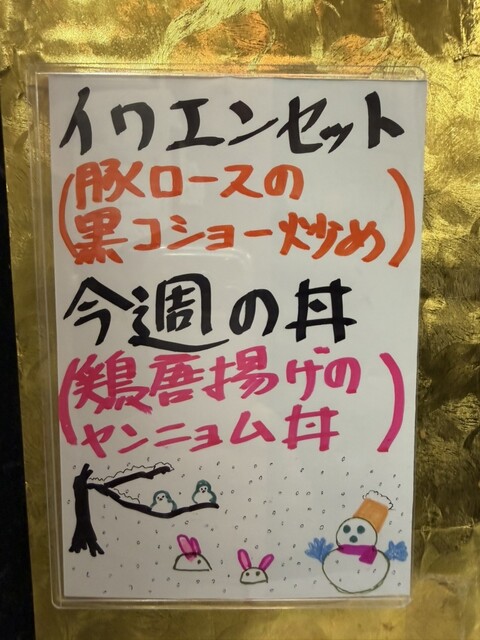 イワエンセット
(豚ロースの
黒コショー炒め)
今週の丼
(鶏唐揚げの
ヤンニョム丼)